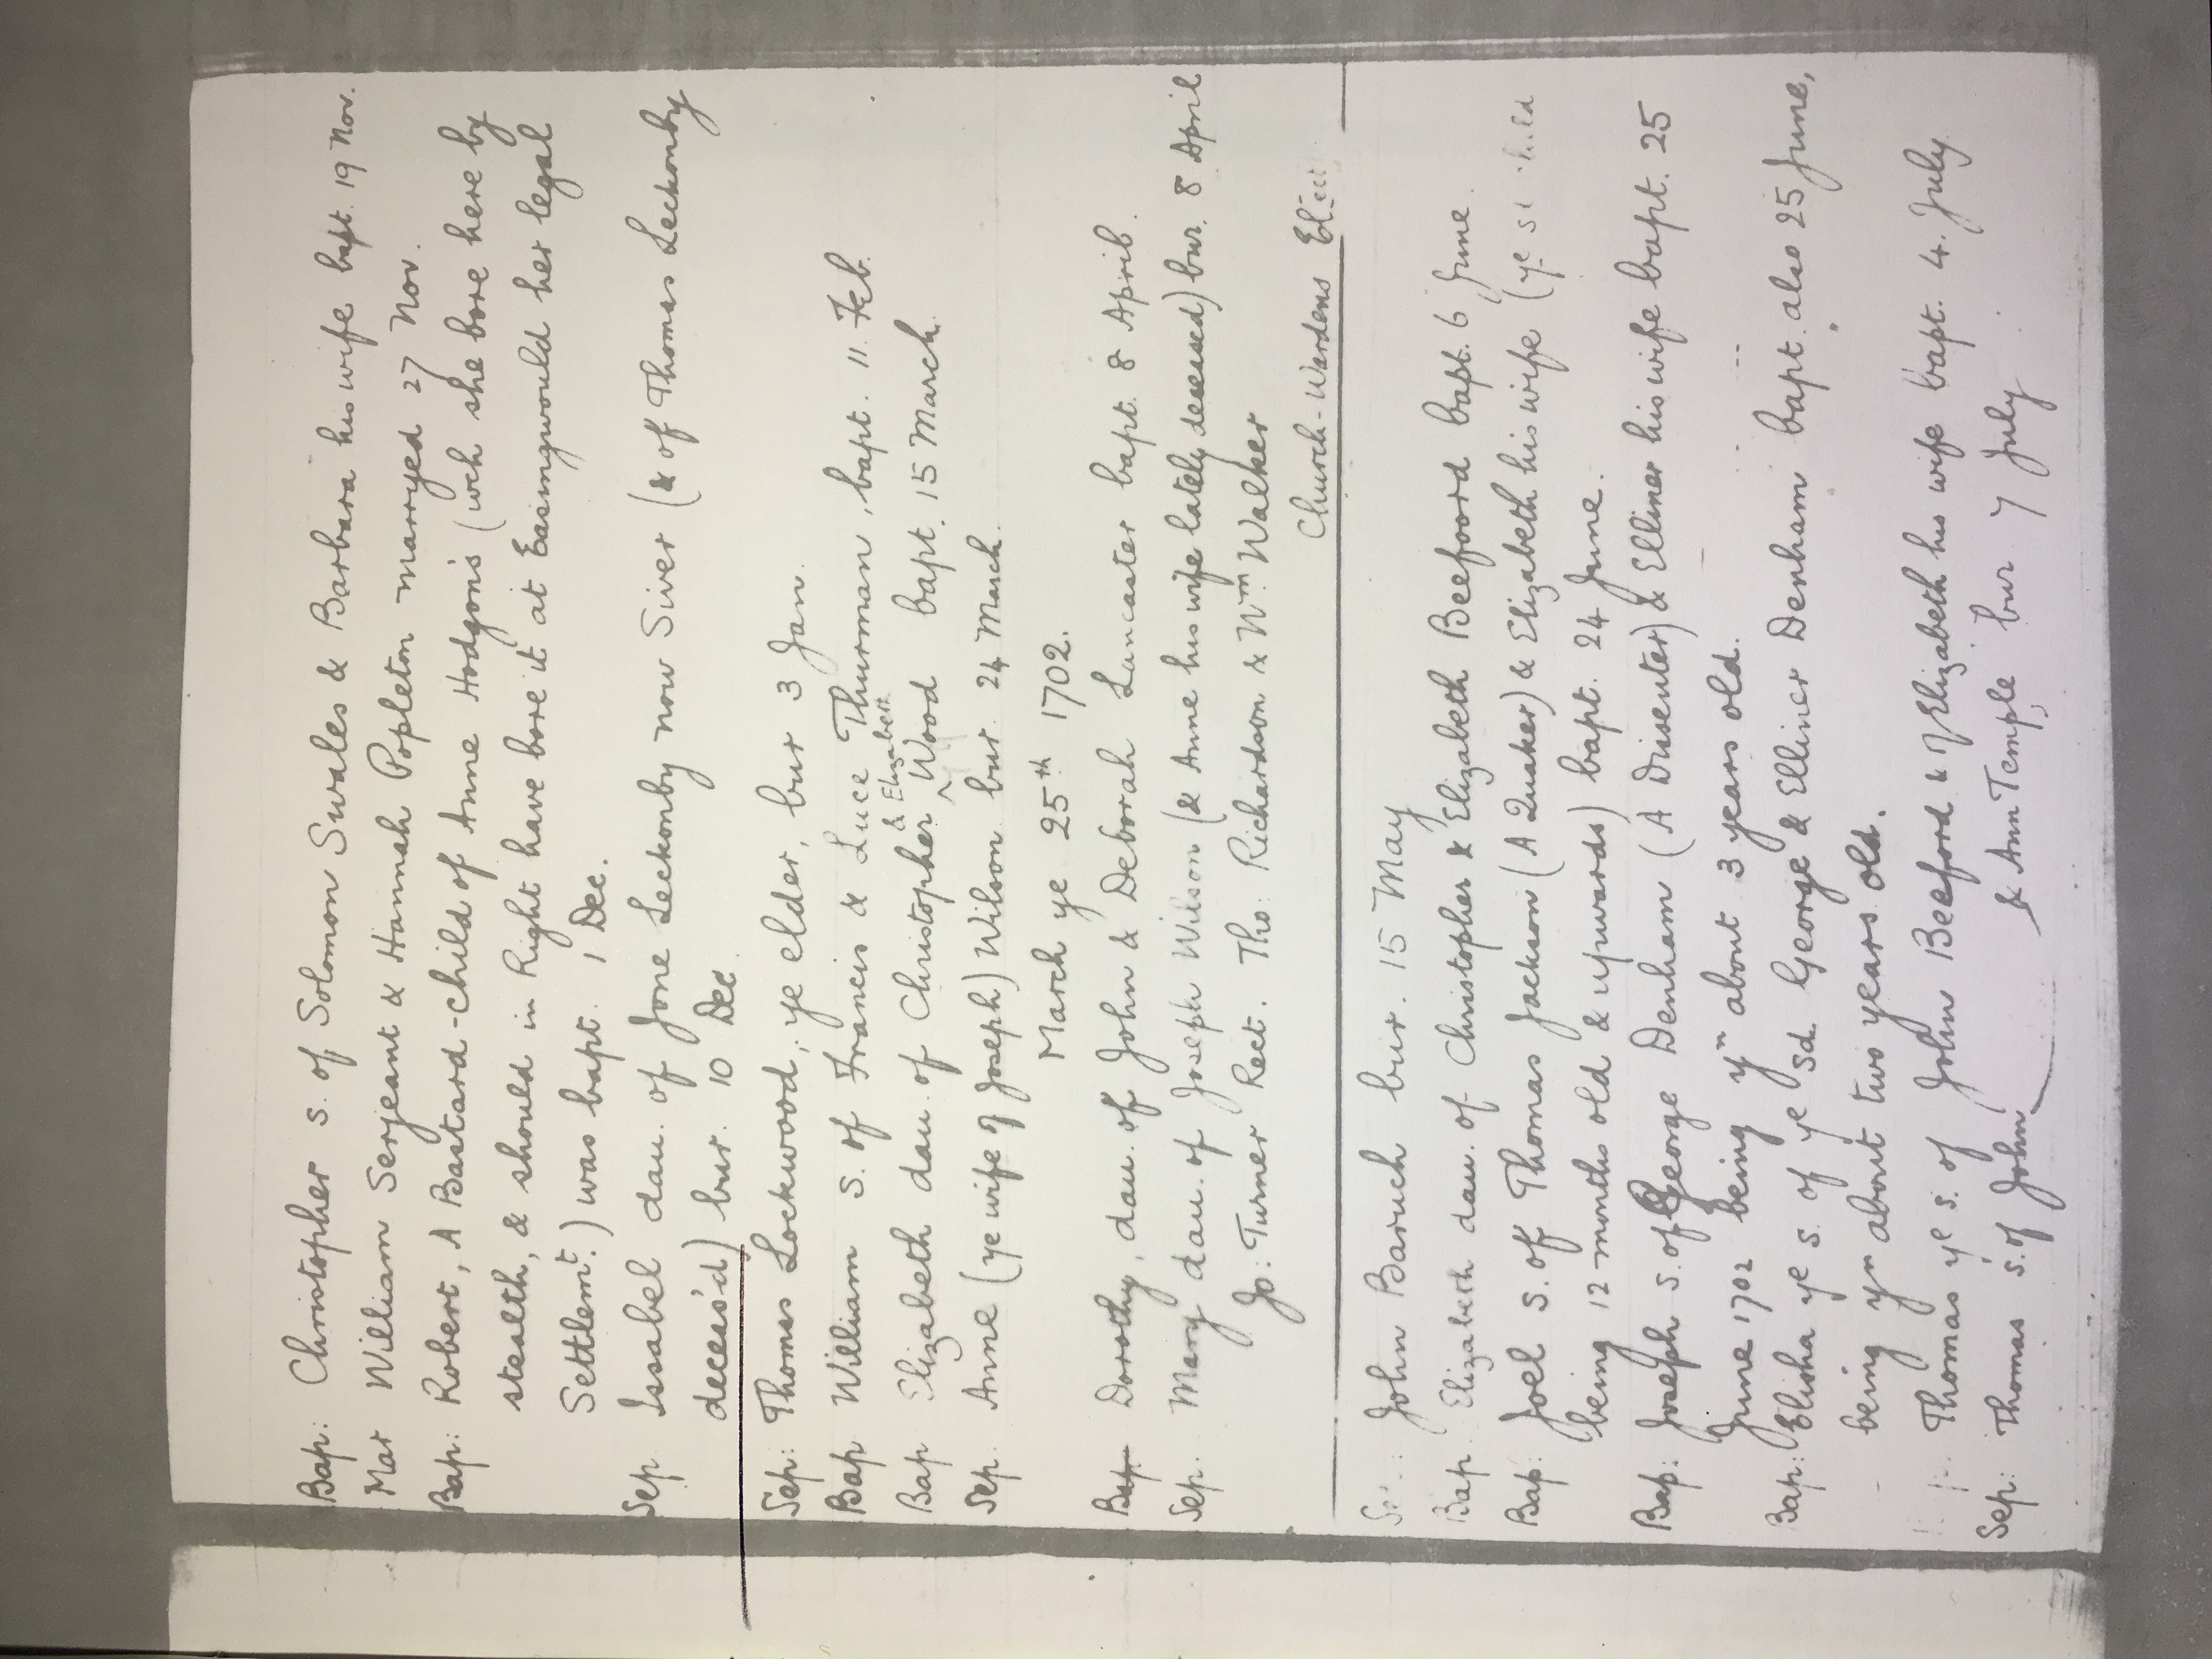 Bap: Christopher s. of Solomon Swales & Barbara his wife bapt. 19 Nov.
Mar William Serjeant & Hannah Popleton marryed 27 Nov.
Bap: Robert, A Bastard-child of Anne Hodgson's (wch she bore here by
stealth, & should in Right have bore it at Easingwould her legal
Settlemt.) was bapt. 1 Dec.
Sep. Issabel dau. of Jone Leckonby now Siver (& of Thomas Leckonby
deceas'd) bur. 10 Dec.
Sep: Thomas Lockwood, ye elder, bur 3 Jan.
Bap William s. of Francis & Luce Thurman, bapt. 11. Feb.
& Elizabeth
Bap Elizabeth dau. of Christopher ^ Wood bapt. 15 March.
Sep. Anne (ye wife of Joseph) Wilson bur 24 March.
March ye 25th 1702.
Bap Dorothy, dau. of John & Deborah Lancaster bapt. 8 April.
Sep. Mary dau. of Joseph Wilson (& Anne his wife lately deceased) bur. 8 April
Jo: Turner Rect. Tho: Richardson & Wm Walker
Church-Wardens Elect
John Baruch bur. 15 May
Bap. Elizabeth dau. of Christopher & Elizabeth Beefoord bapt. 6 June.
Bap: Joel S. of Thomas Jackson (A Quaker) & Elizabeth his wife (ye
being 12 months old & upwards) bapt. 24 June.
Bap: Joseph s. of George Denham (A Dissenter) & Elliner his wife bapt. 25
June 1702 being yn about 3 years old.
Bap: Elisha ye s. of ye sd George & Elliner Denham bapt. also 25 June,
being yn about two years old.
Thomas ye s. of John Beeford & Elizabeth his wife bapt. 4. July
Sep: Thomas s. of John & Ann Temple, bur 7 July